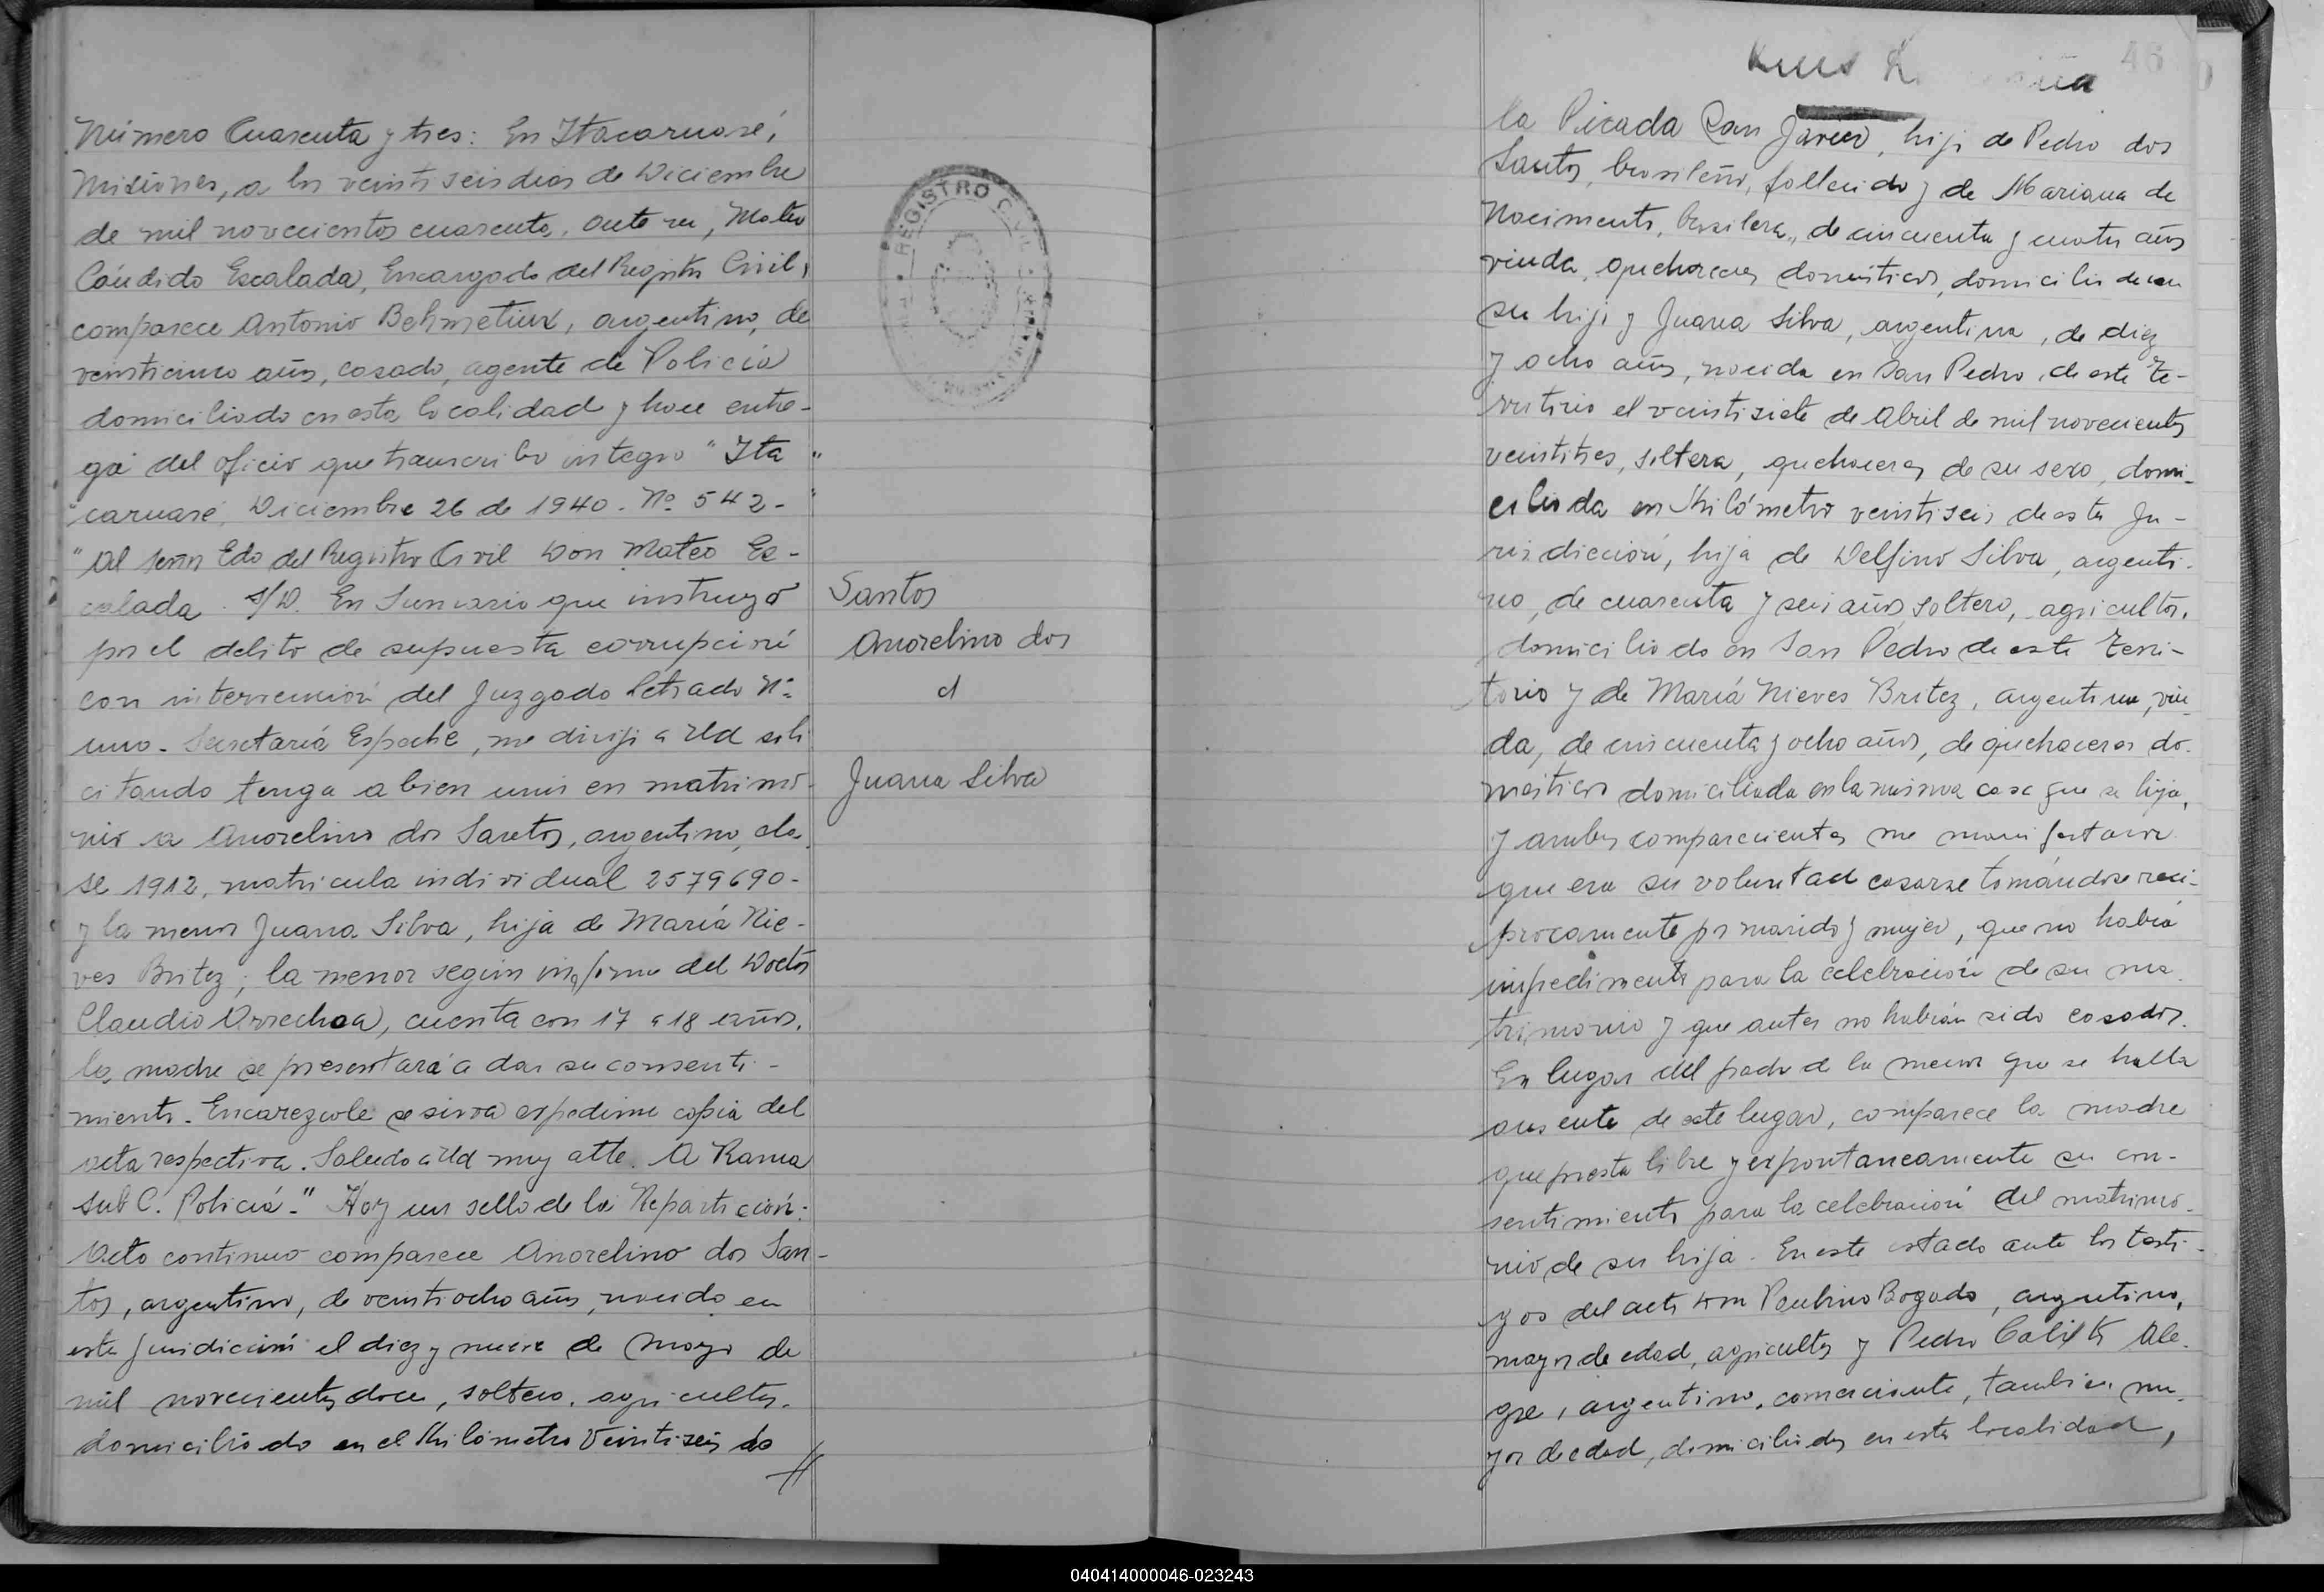 Número Cuarenta y tres: En Itacaruaré,
Misiones, a los veinti seis dias de Diciembre
de mil novecientos cuarenta, ante mi, Mateo
Cándido Escalada, Encargado del Registro Civil,
comparece Antonio argentino, de
veinticinco años, casado, agente de Policía
domiciliado en esta localidad y hace entre-
ga del oficio que transcribo integro "Ita
"caruaré, Diciembre 26 de 1940. Nº 542-
"Al señor Edo del Registro Civil Don Mateo Es-
calada. S/D. En Sumario que instruyo
por el delito de supuesta corrupción
con intervención del Juzgado Letrado Nº
uno- Secretaría Espeche, me dirijo a Ud soli
citando tenga a bien unir en matrimo-
nio a Anorelino dos Santos, argentino, cla-
se 1912, matricula individual 2579690-
y la menor Juana Silva, hija de María Nie-
ves Britez; la menor según informe del Doctor
Claudio Arrechea, cuenta con 17 a 18 años.
la madre se presentará a dar su consenti-
miento. Encarezcole se sirva expedirme copia del
acta respectiva. Saludo a Ud muy atte. A Rama
sub C. Policía-" Hay un sello de la Repartición:
Acto continuo comparece Anorelino dos San-
tos, argentino, de veintiocho años, nacido en
esta Juridicción el diez y nueve de Mayo de
mil novecientos doce, soltero, agricultor,
domiciliado en el Kilómetro Veintiseis de
REGISTRO CIVIL
Santos
Anorelino dos
Juana Silva
46
la Picada San Javier, hijo de Pedro dos
Santos, brasileño, fallecido y de Mariana de
Nacimento, brasilera, de cincuenta y cuatro años
viuda, quehaceres domésticos, domicilio
su hijo y Juana Silva, argentina, de diez
y ocho años, nacida en San Pedro, de este Te-
rritorio el veintisiete de Abril de mil novecientos
veintitres, soltera, quehaceres de su sexo, domi-
ciliada en Kilómetro veintiseis de esta Ju-
risdicción, hija de Delfino Silva, argenti-
no, de cuarenta y seis años, soltero, agricultor,
domiciliado en San Pedro de este Terri-
torio y de María Nieves Britez, argentina, viu-
da, de cincuenta y ocho años, de quehaceres do-
mésticos domiciliada en la misma casa que su hija,
y ambos comparecientes me manifestaron
que era su voluntad casarse tomándose reci-
procamente por marido y mujer, que no había
impedimento para la celebración de su ma-
trimonio y que antes no habían sido casados.
En lugar del padre de la menor que se halla
ausente de este lugar, comparece la madre
que presta libre y expontaneamente su con-
sentimiento para la celebración del matrimo-
nio de su hija. En este estado ante los testi-
gos del acto don Paulino Bogado, argentino,
mayor de edad, agricultor y Pedro Calixto Ale-
gre, argentino, comerciante, tambien ma-
yor de edad, domiciliados en esta localidad,
040414000046-023243